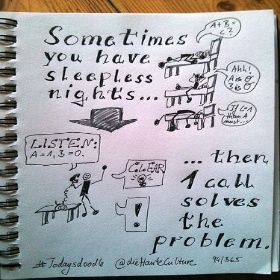 Sometimes
you have
sleepless
nights...
A+B=
C?
Ahh!
LISTEN:
A=1, B=0.
CLEAR
!
... then
1 call
solves
the
problem.
#Todaysdoodle @dieHauteCulture 94/365